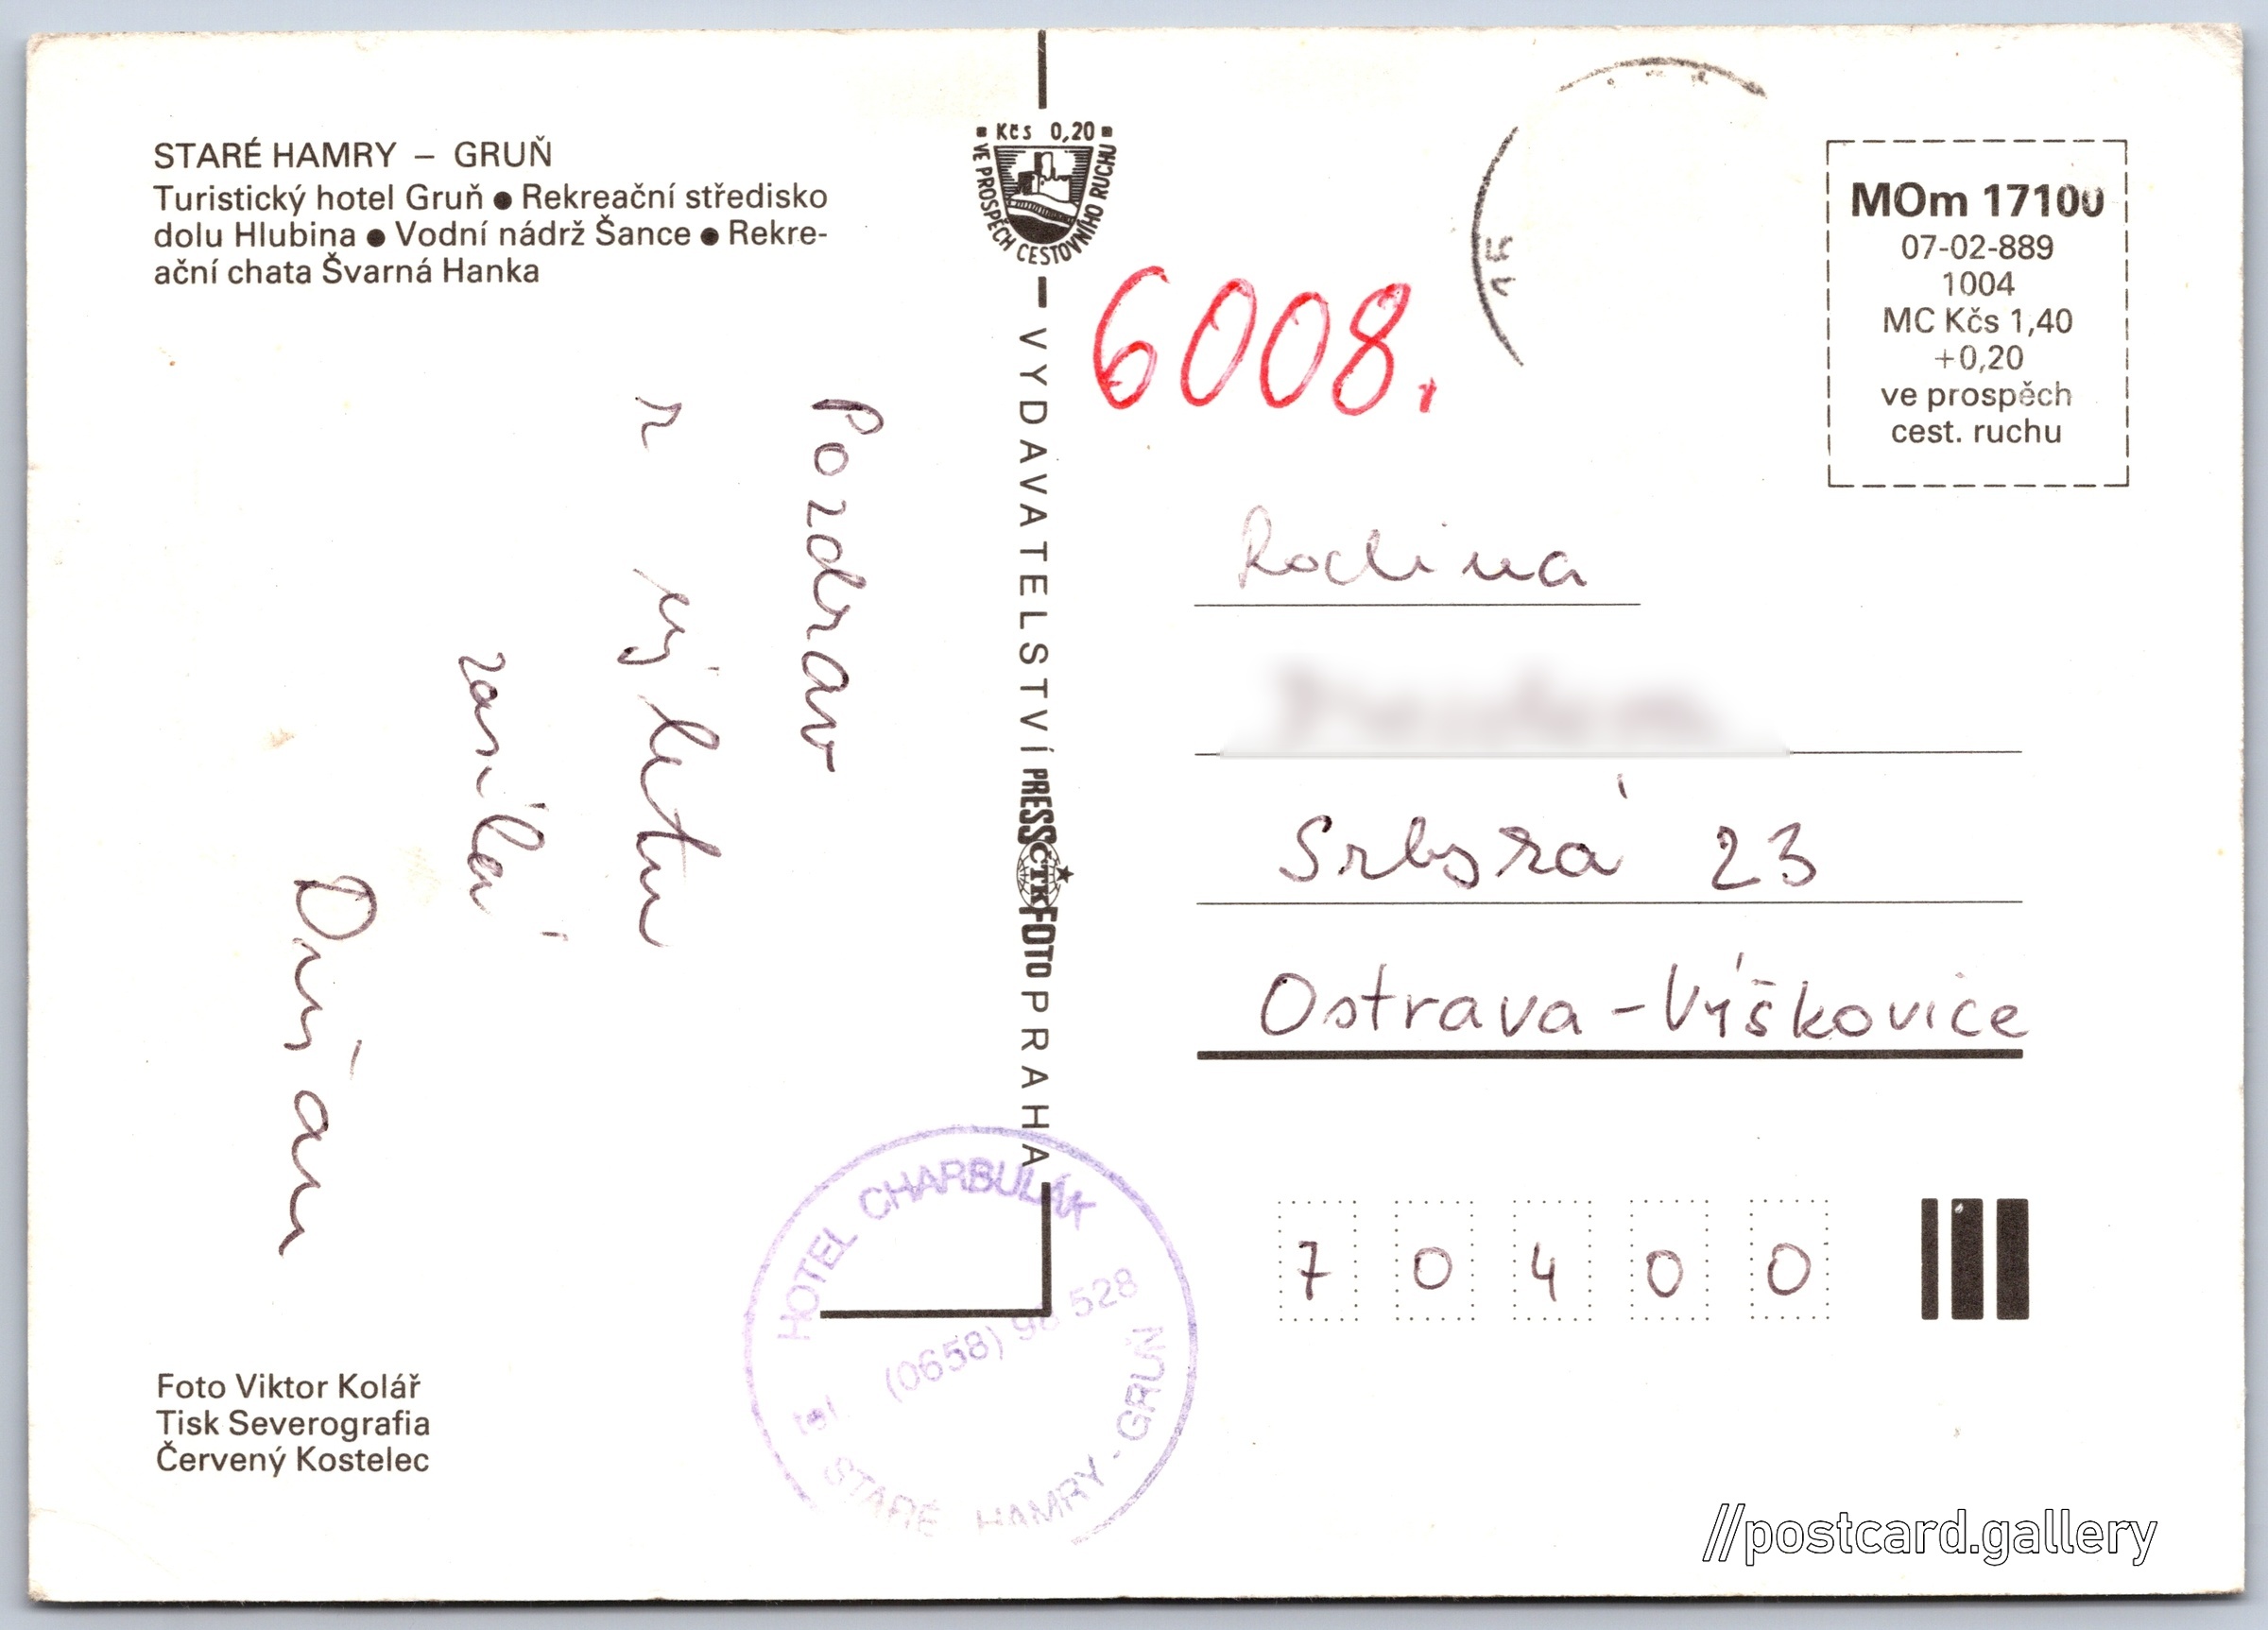 STARÉ HAMRY – GRUŇ
Turistický hotel Gruň ● Rekreační středisko
dolu Hlubina ● Vodní nádrž Šance ● Rekre-
ační chata Švarná Hanka
Pozdrav
z výletu
zasílá
Dušan
Foto Viktor Kolář
Tisk Severografia
Červený Kostelec
Kčs 0,20
VE PROSPĚCH CESTOVNÍHO RUCHU
VYDAVATELSTVÍ PRESSFOTO PRAHA
ČTK
HOTEL CHARBULÁK
tel. (0658) 96 528
STARÉ HAMRY - GRUŇ
6008.
MOm 17100
07-02-889
1004
MC Kčs 1,40
+0,20
ve prospěch
cest. ruchu
Rodina
Srbská 23
Ostrava - Výškovice
70400
//postcard.gallery